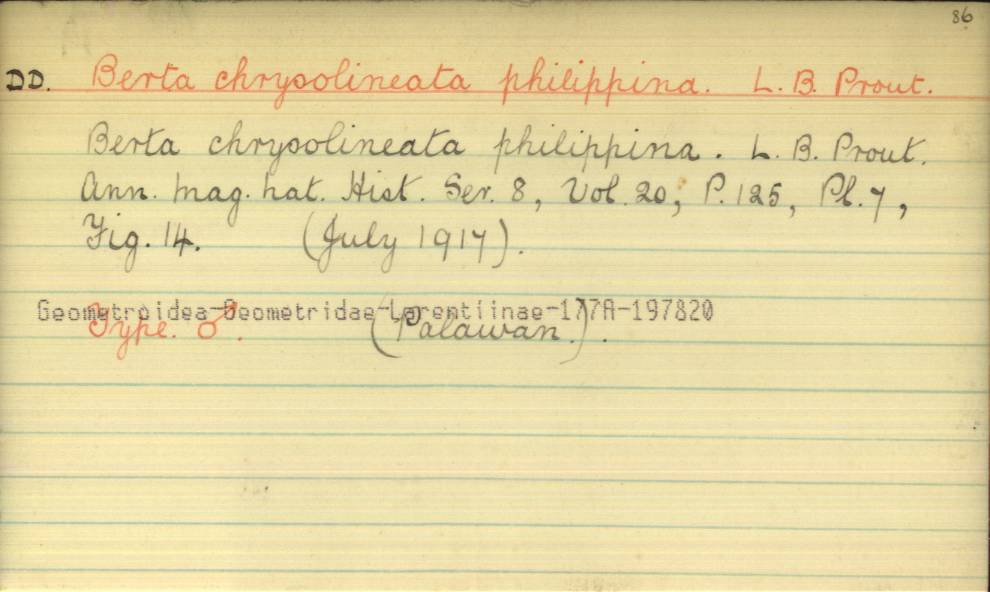 86
DD. Berta chrysolineata philippina. L. B. Prout.
Berta chrysolineata philippina. L. B. Prout.
Ann. Mag. nat. Hist. Ser. 8, Vol. 20; P. 125, Pl. 7,
Fig. 14. (July 1917).
Geometroidea-Geometridae-Larentiinae-177A-197820
Type. ♂. (Palawan.).